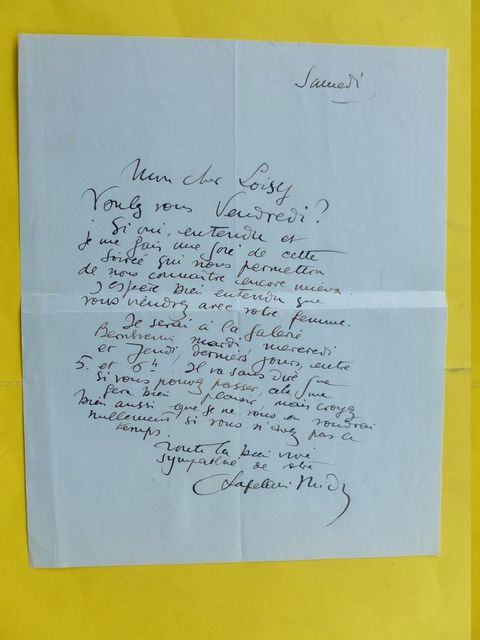 Samedi
Mon cher Loisy
Voulez vous Vendredi ?
Si oui, entendu et
je me fais une joie de cette
soirée qui nous permettra
de nous connaître encore mieux.
J'espère bien entendu que
vous viendrez avec votre femme.
Je serai à la Galerie
Bernheim mardi, mercredi
et Jeudi, derniers jours, entre
5. et 6h. Il va sans dire que
si vous pouvez passer, cela me
fera bien plaisir, mais croyez
bien aussi que je ne vous en voudrai
nullement si vous n'avez pas le
temps.
Toute la bien vive
sympathie de votre
Chapelain Midy